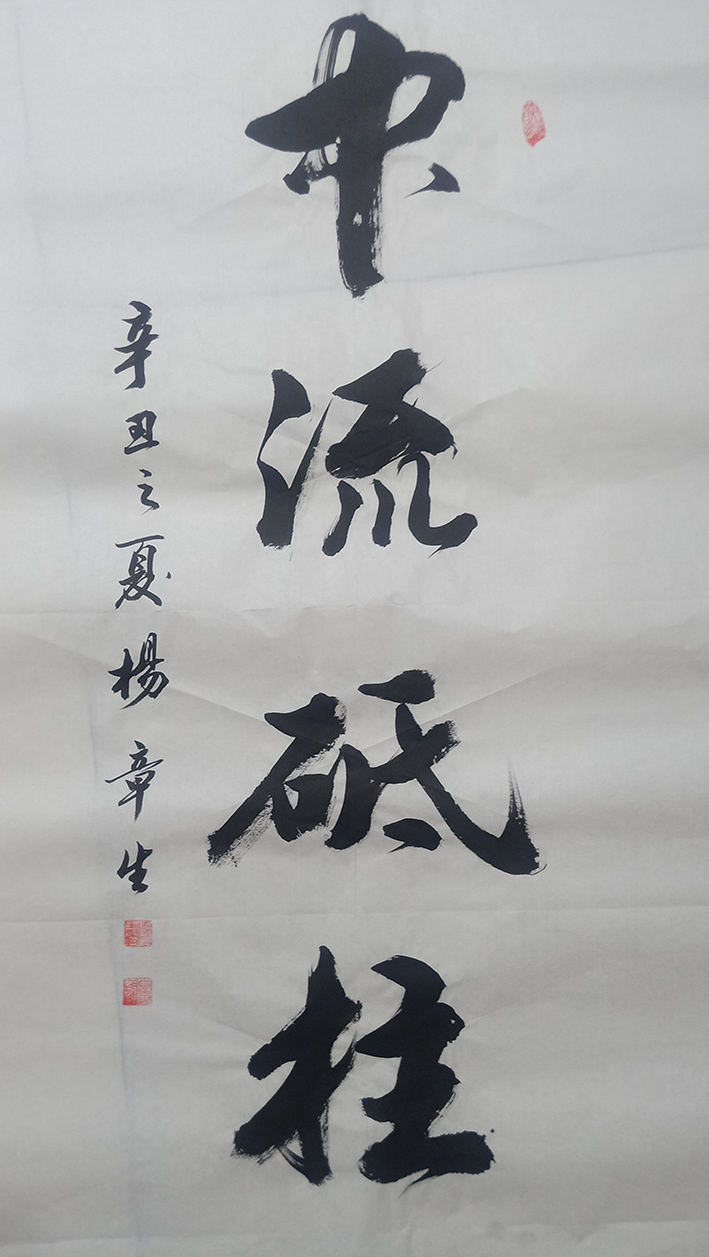 中流砥柱
辛丑之夏楊章生